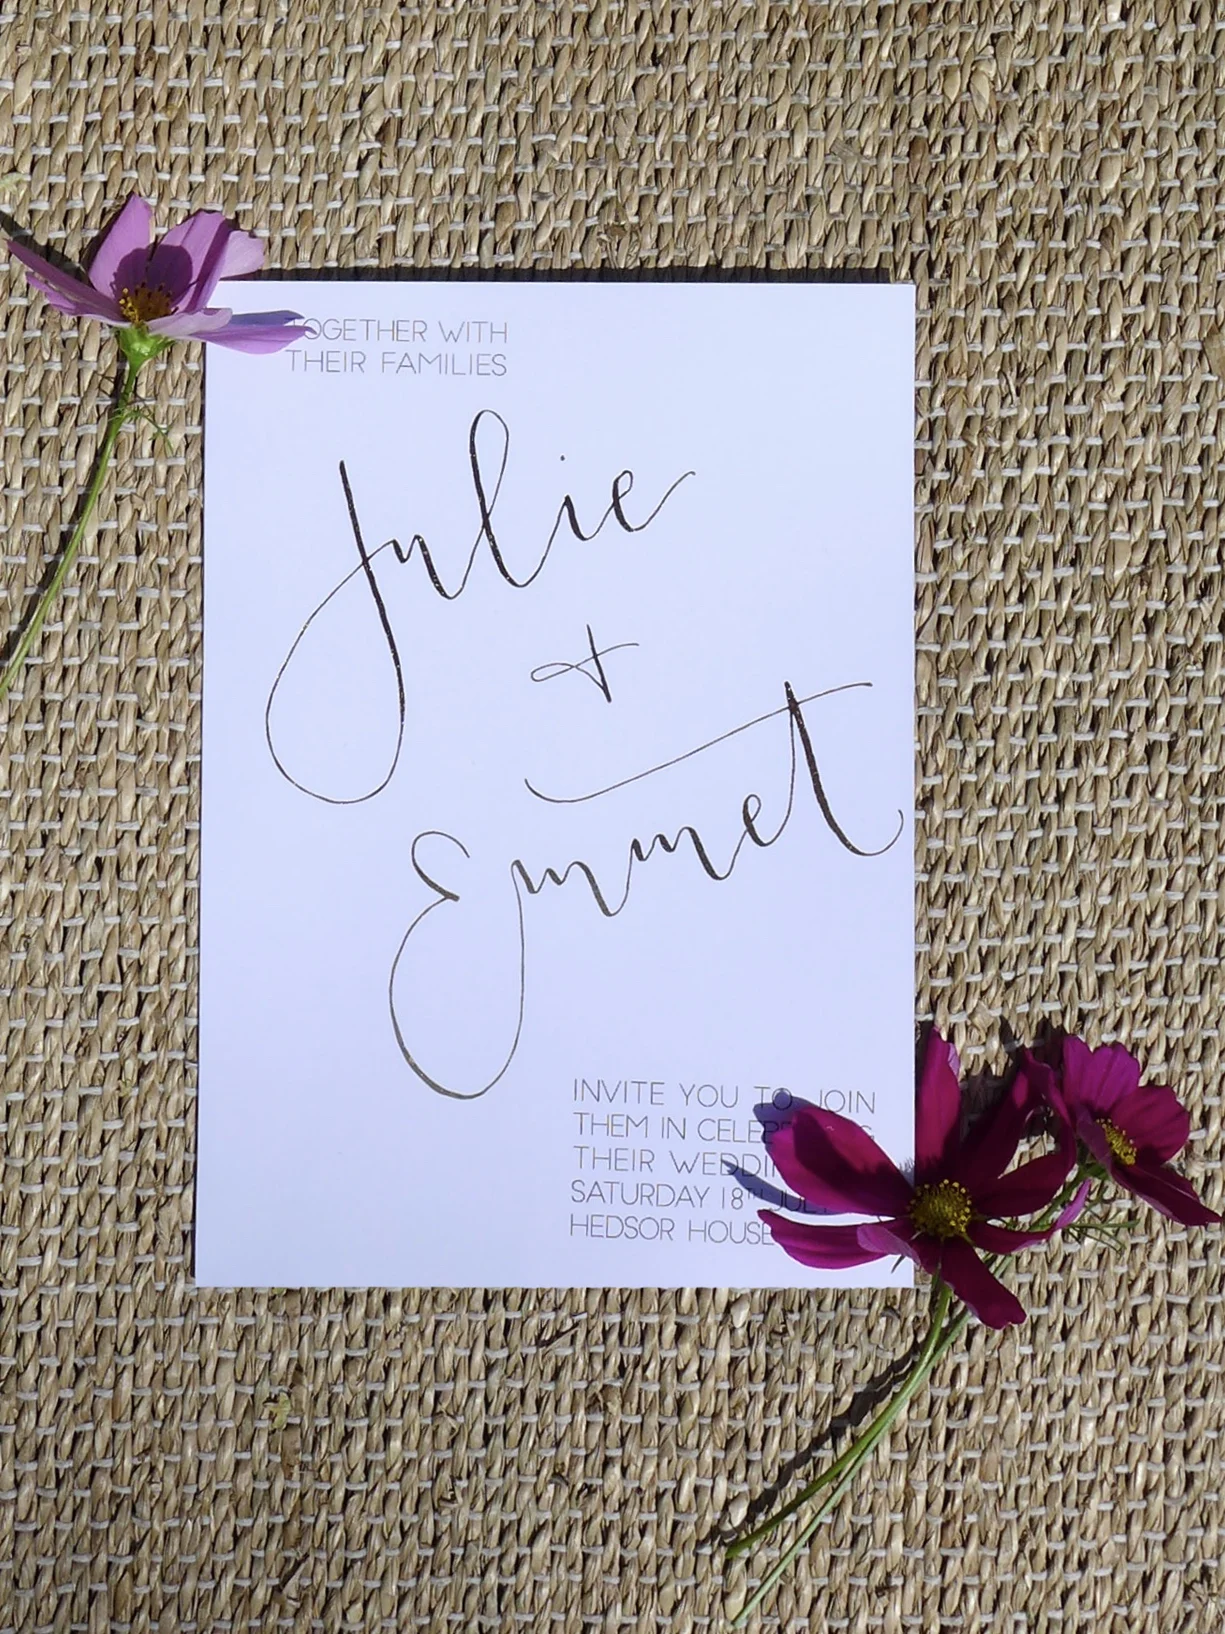 TOGETHER WITH
THEIR FAMILIES
Julie
+
Emmet
INVITE YOU TO JOIN
THEM IN CELEBRATING
THEIR WEDDING
SATURDAY 18TH JULY
HEDSOR HOUSE